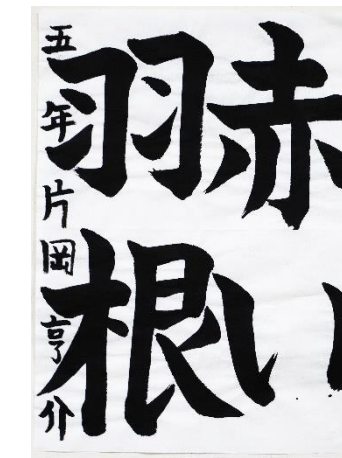 赤い
羽根
五年片岡亨介